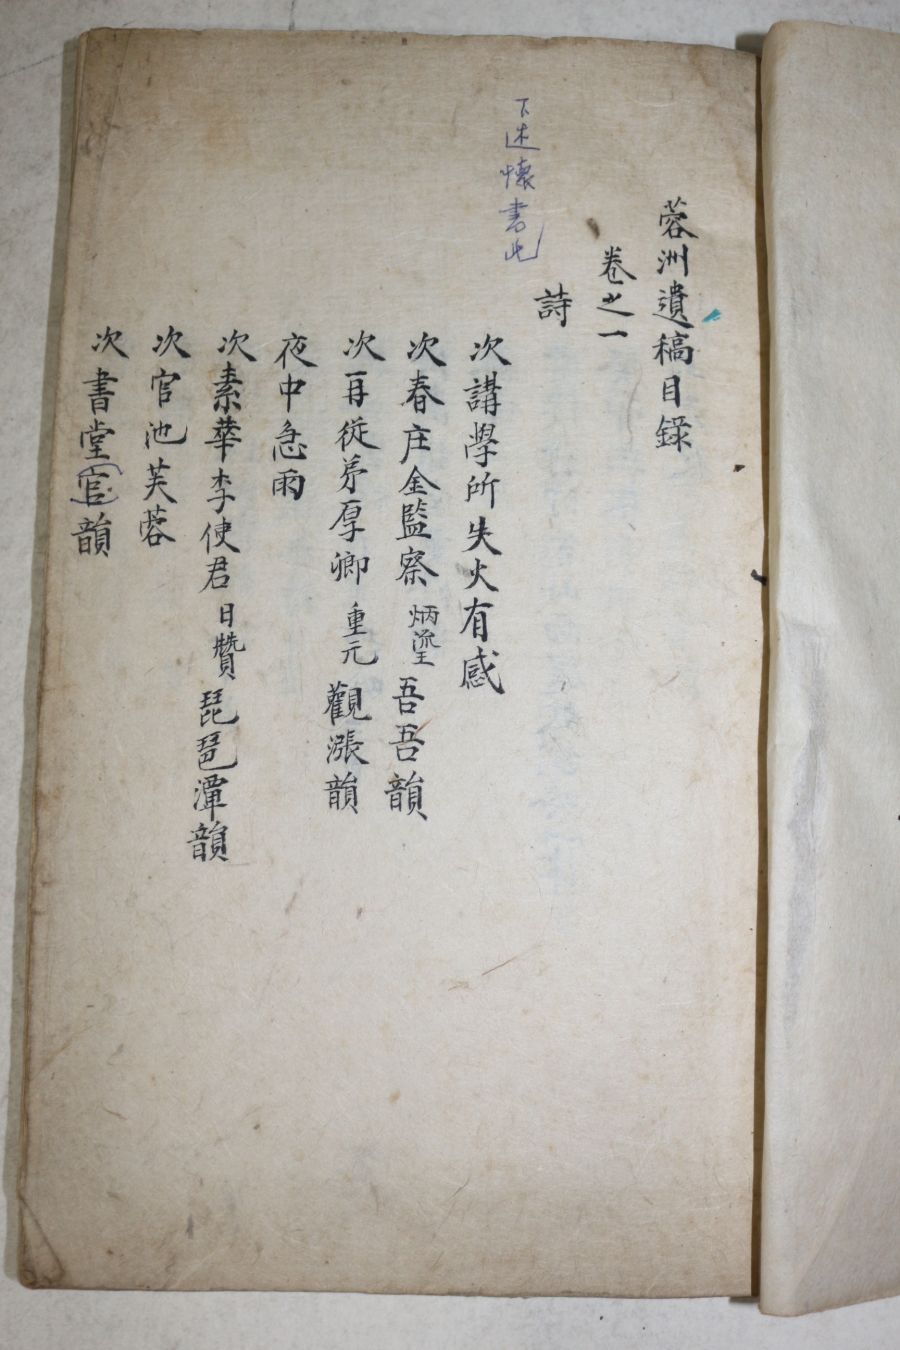 蓉洲遺稿目録
卷之一
下述懷書此
詩
次講學所失火有感
次春庄金監察炳瀅吾吾韻
次再從弟厚卿重元觀漲韻
夜中急雨
次素華李使君日贊琵琶潭韻
次官池芙蓉
次書堂官韻